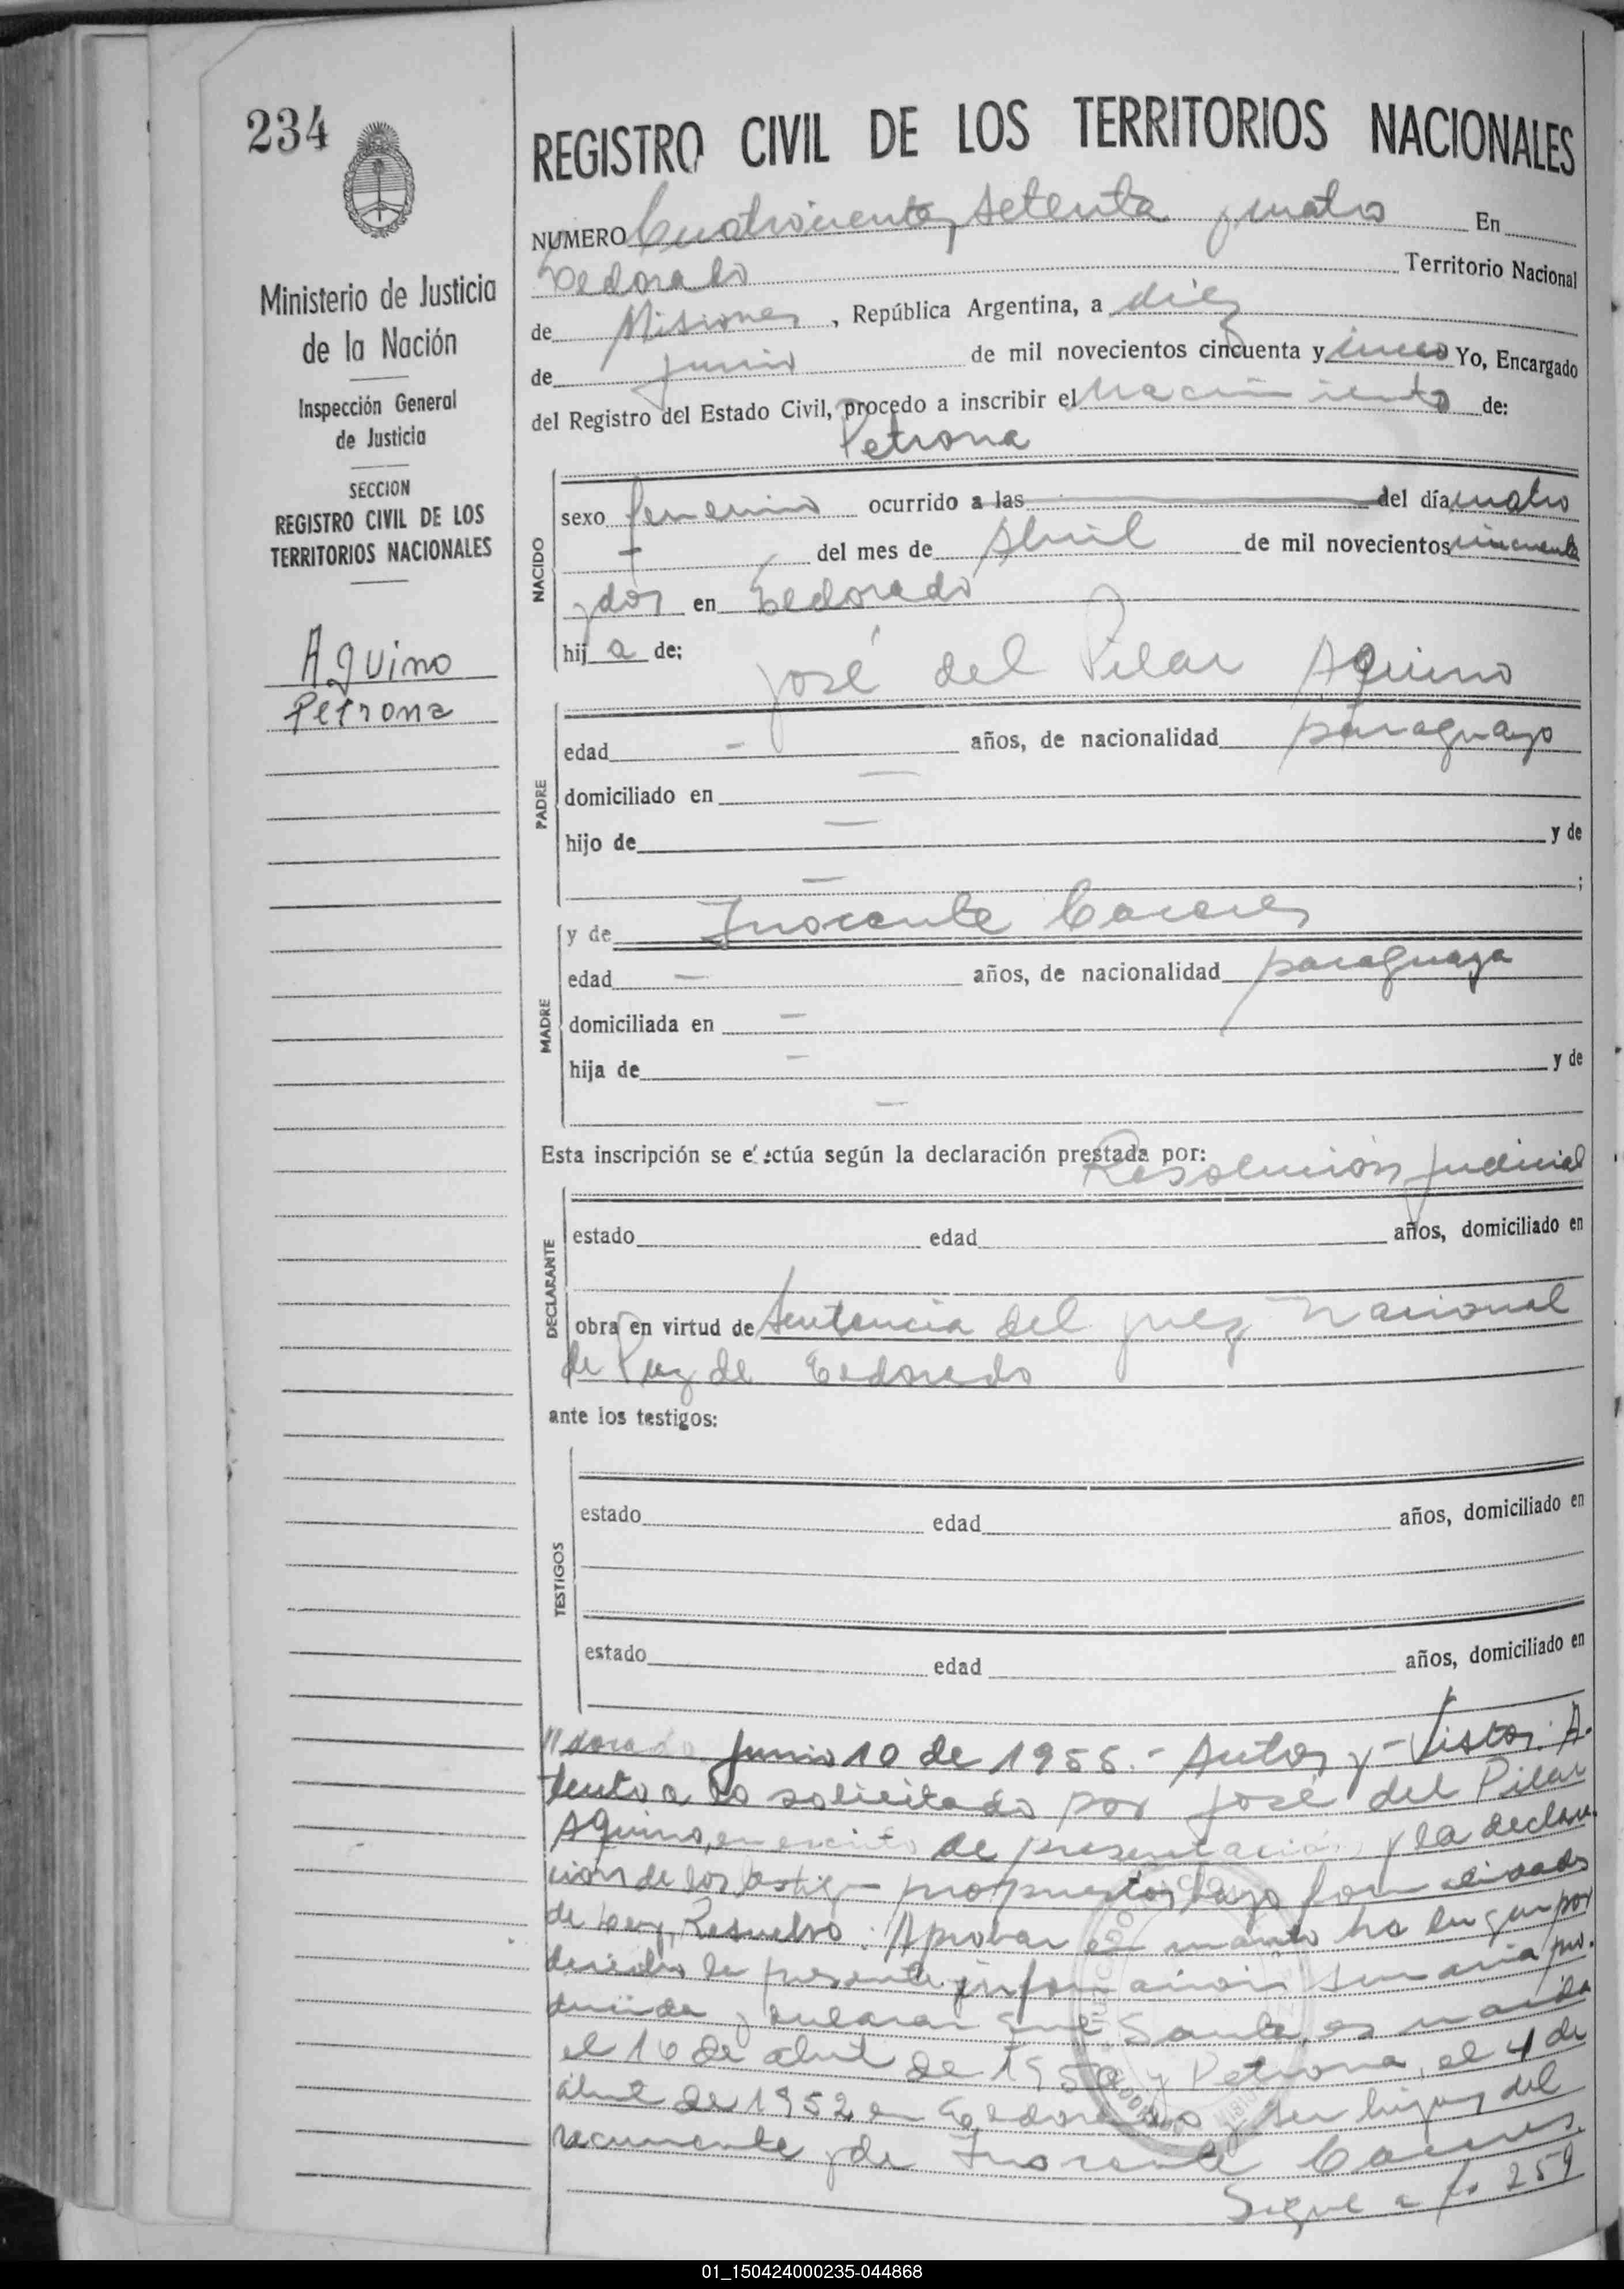 234
Ministerio de Justicia
de la Nación
Inspección General
de Justicia
SECCION
REGISTRO CIVIL DE LOS
TERRITORIOS NACIONALES
Aquino
Petrona
REGISTRO CIVIL DE LOS TERRITORIOS NACIONALES
NUMERO Cuatrocientos setenta y cuatro En
Eldorado Territorio Nacional
de Misiones, República Argentina, a diez
de junio de mil novecientos cincuenta y cinco Yo, Encargado
del Registro del Estado Civil, procedo a inscribir el nacimiento de:
Petrona
NACIDO
sexo femenino ocurrido a las del día cuatro
— del mes de Abril de mil novecientos cincuenta
y dos en Eldorado
hij a de:
José del Pilar Aquino
PADRE
edad — años, de nacionalidad paraguayo
domiciliado en —
hijo de — y de
— ;
y de Inocente Caceres
MADRE
edad — años, de nacionalidad paraguaya
domiciliada en —
hija de — y de
—
Esta inscripción se efectúa según la declaración prestada por:
Resolución judicial
DECLARANTE
estado edad años, domiciliado en
obra en virtud de sentencia del juez Nacional
de Paz de Eldorado
ante los testigos:
TESTIGOS
estado edad años, domiciliado en
estado edad años, domiciliado en
dorado Junio 10 de 1955.- Autos y - Vistos: A-
tento a lo solicitado por José del Pilar
Aquino, en escrito de presentación y la declara-
ción de los testigos propuestos bajo formalidades
de Ley, Resuelvo: Aprobar en cuanto ha lugar por
derecho la presente información sumaria pro-
ducida y declarar que Santa, es nacida
el 16 de abril de 1950 y Petrona, el 4 de
abril de 1952 en Eldorado y ser hijas del
recurrente y de Inocente Caceres.
Sigue a fo 259
01_150424000235-044868